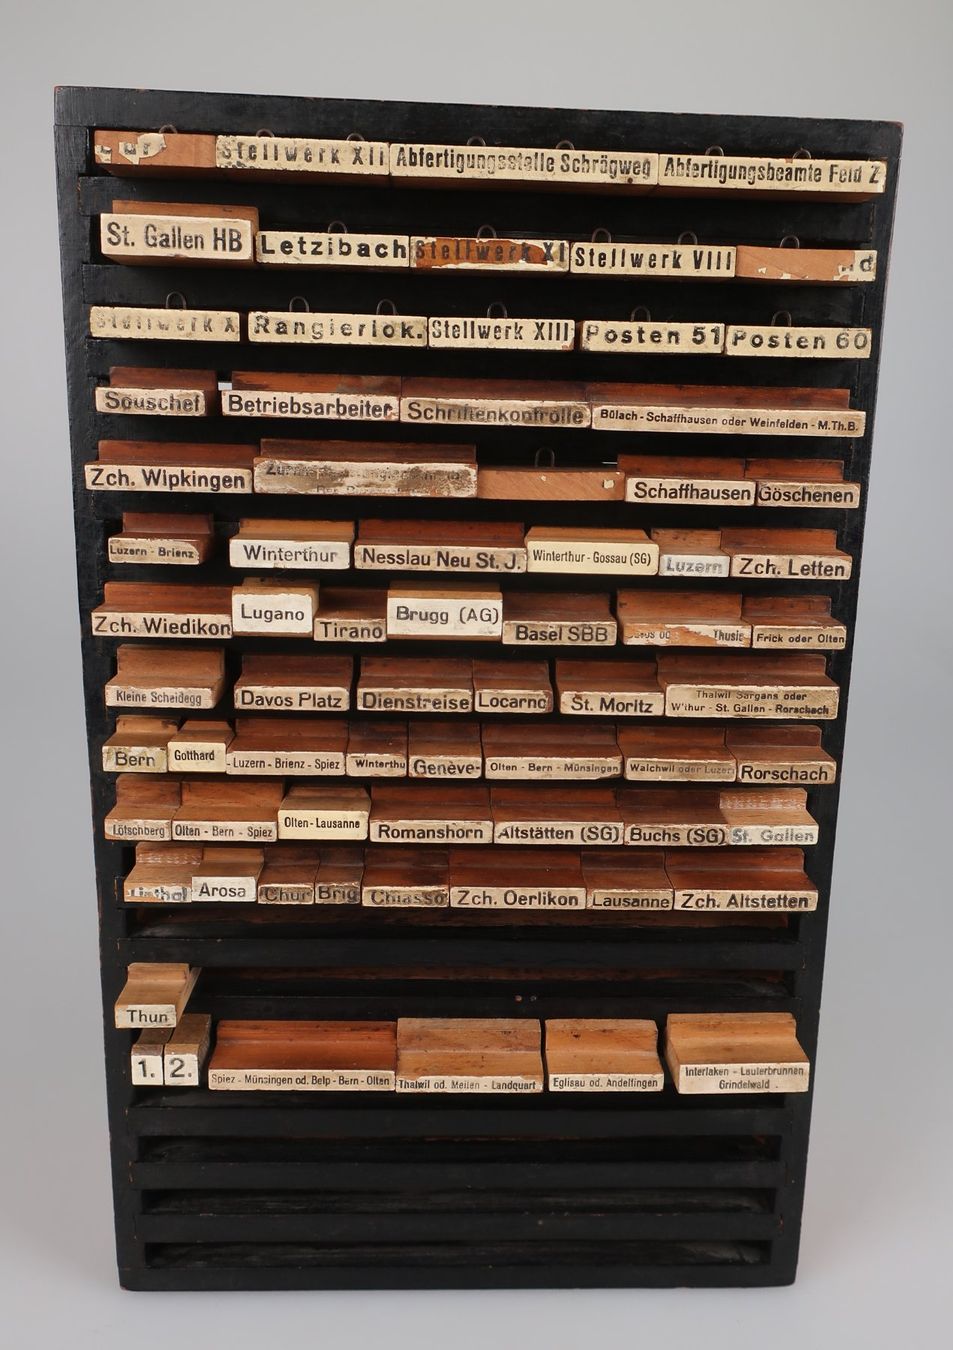 Stellwerk XII
Abfertigungsstelle Schrägweg
Abfertigungsbeamte Feld Z
St. Gallen HB
Letzibach
Stellwerk XI
Stellwerk VIII
Stellwerk X
Rangierlok.
Stellwerk XIII
Posten 51
Posten 60
Souschef
Betriebsarbeiter
Schriftenkontrolle
Bülach - Schaffhausen oder Weinfelden - M.Th.B.
Zch. Wipkingen
Schaffhausen
Göschenen
Luzern - Brienz
Winterthur
Nesslau Neu St. J.
Winterthur - Gossau (SG)
Luzern
Zch. Letten
Zch. Wiedikon
Lugano
Tirano
Brugg (AG)
Basel SBB
Thusis
Frick oder Olten
Kleine Scheidegg
Davos Platz
Dienstreise
Locarno
St. Moritz
Thalwil Sargans oder
W'thur - St. Gallen - Rorschach
Bern
Gotthard
- Luzern - Brienz - Spiez
Winterthu
Genève-
Olten - Bern - Münsingen
Walchwil oder Luzern
Rorschach
Lötschberg
Olten - Bern - Spiez
Olten - Lausanne
Romanshorn
Altstätten (SG)
Buchs (SG)
St. Gallen
Linthal
Arosa
Chur
Brig
Chiasso
Zch. Oerlikon
Lausanne
Zch. Altstetten
Thun
1.
2.
Spiez - Münsingen od. Belp - Bern - Olten
Thalwil od. Meilen - Landquart
Eglisau od. Andelfingen
Interlaken - Lauterbrunnen
Grindelwald